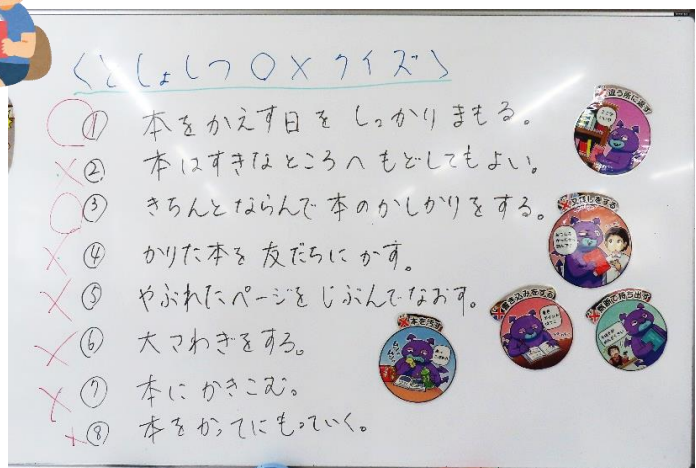 くとしょしつ〇×クイズ〉
〇① 本をかえす日をしっかりまもる。
×② 本はすきなところへもどしてもよい。
〇③ きちんとならんで本のかしかりをする。
×④ かりた本を友だちにかす。
×⑤ やぶれたページをじぶんでなおす。
×⑥ 大さわぎをする。
×⑦ 本にかきこむ。
×⑧ 本をかってにもっていく。
違う所に返す
×又貸しをする
×書き込みをする
×無断で持ち出す
×本を汚す